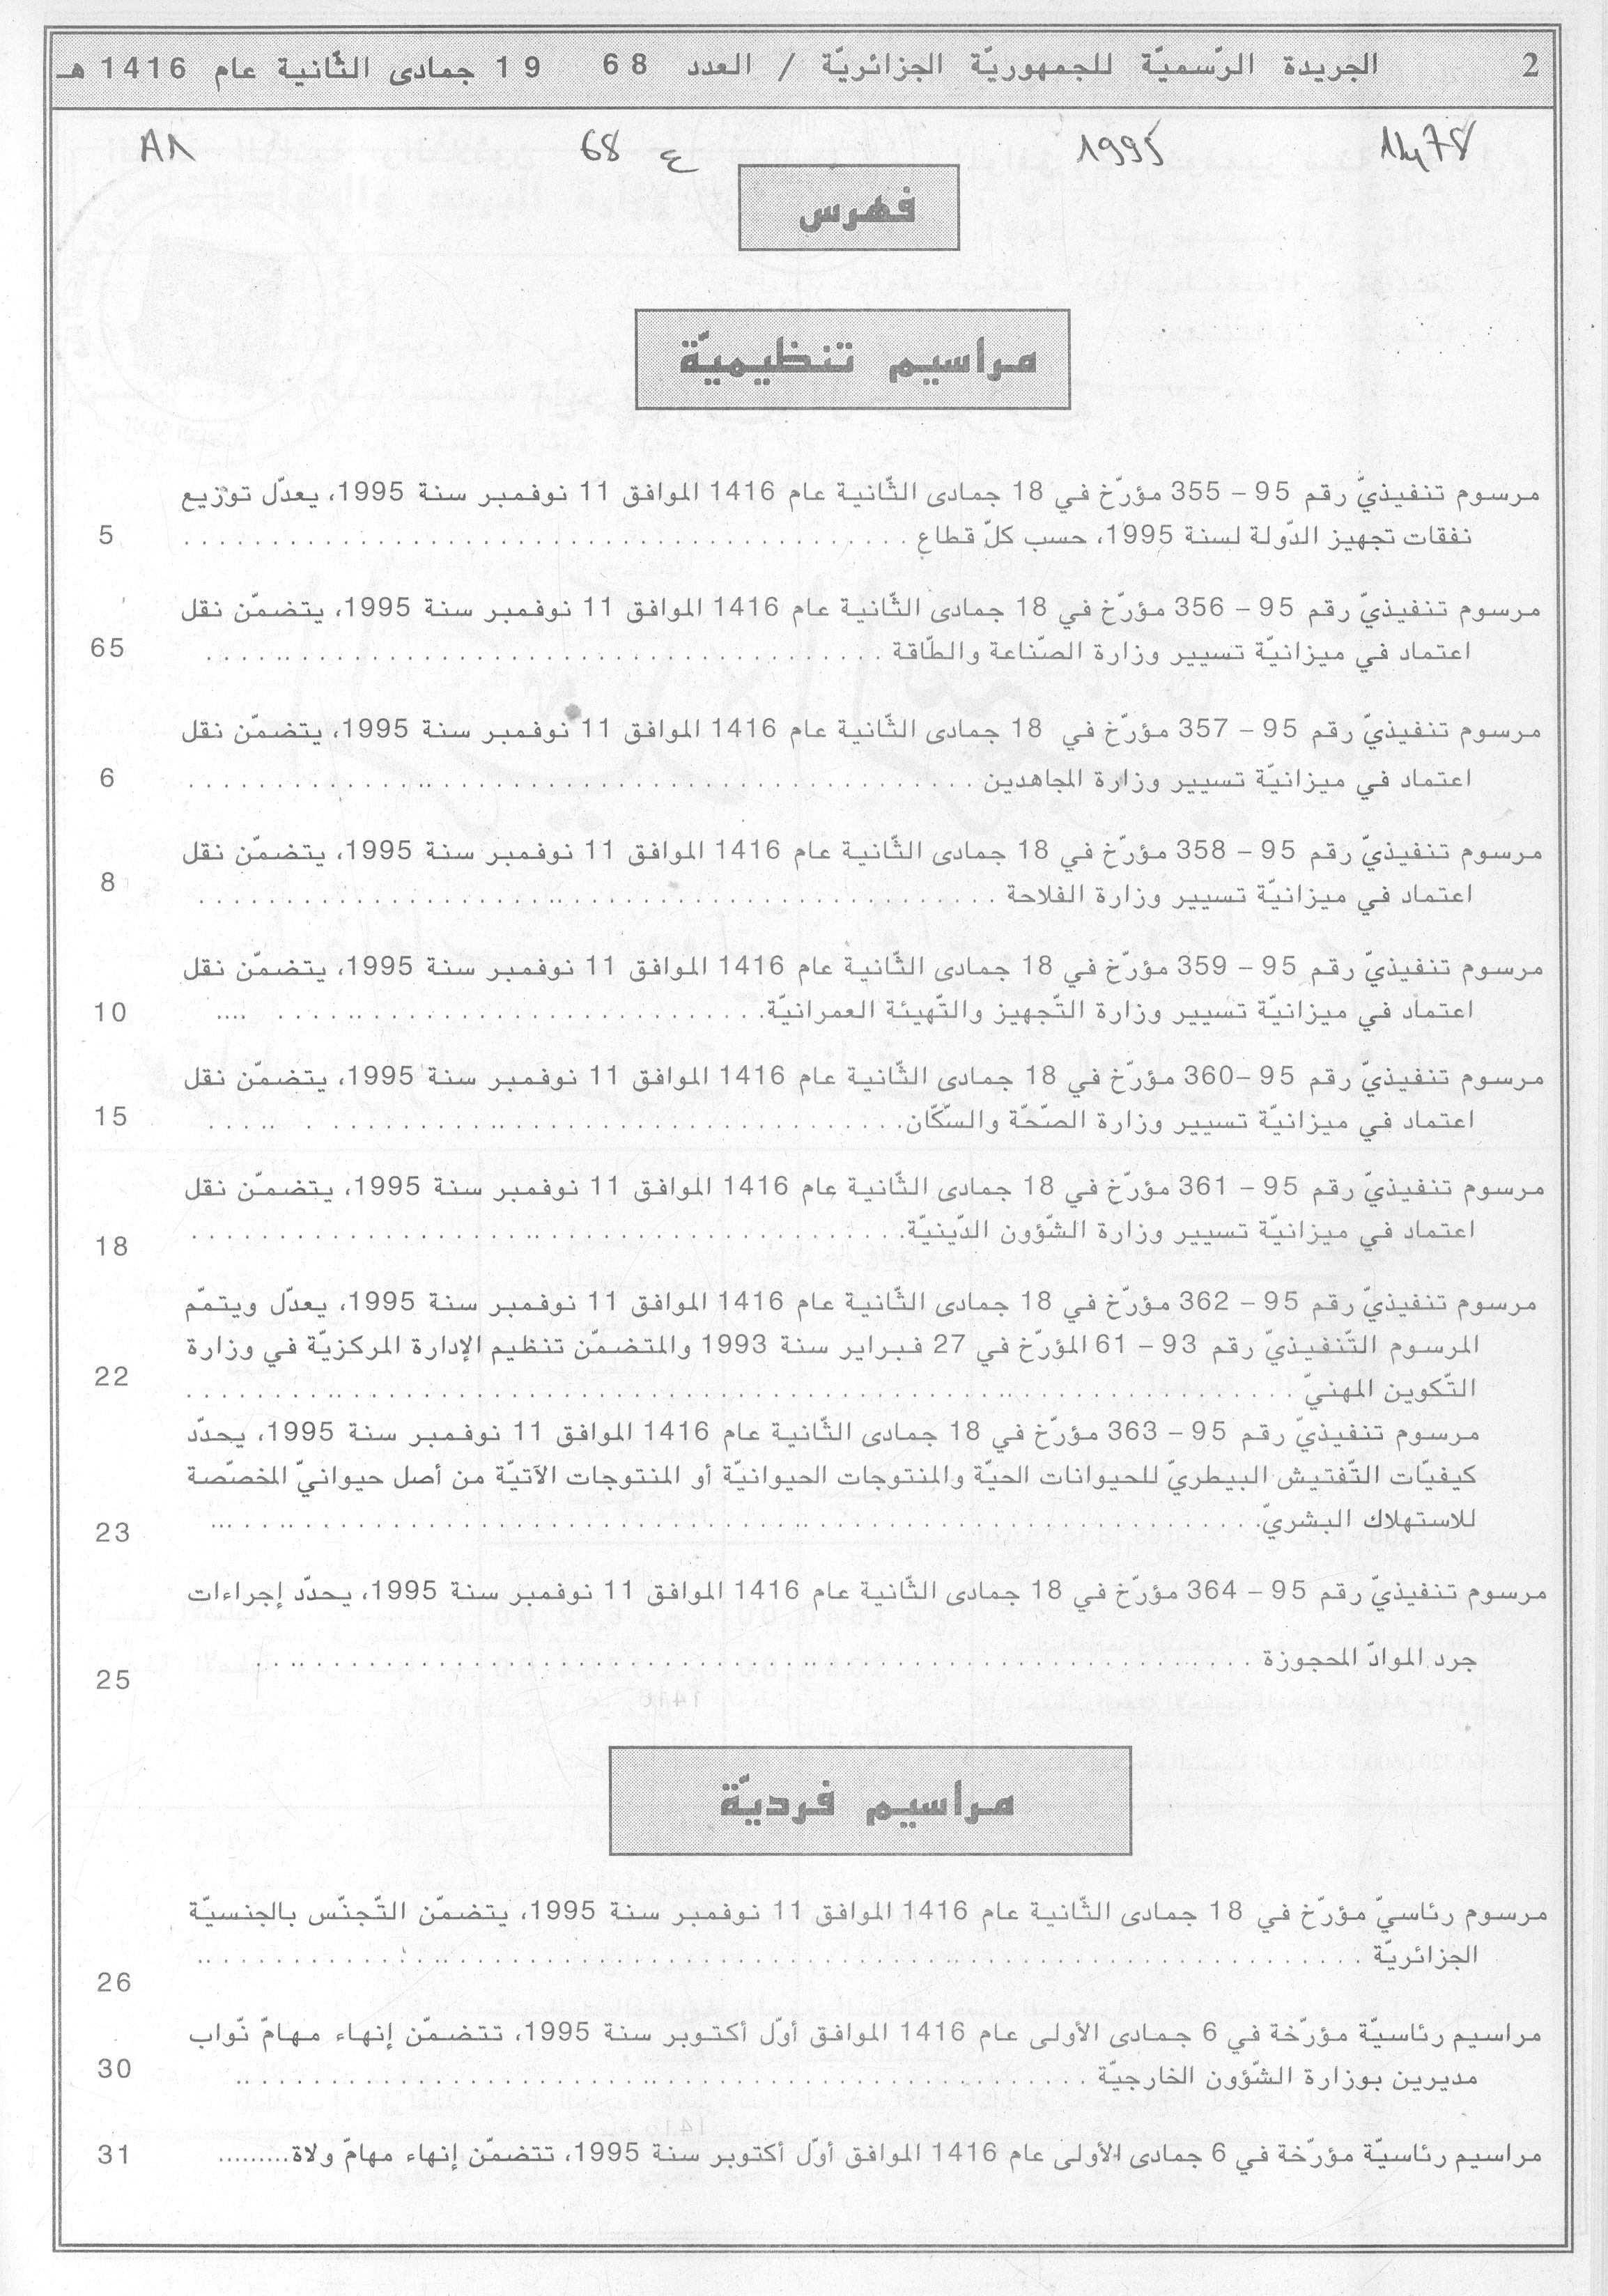 2 الجريدة الرّسميّة للجمهوريّة الجزائريّة / العدد 68 19 جمادى الثّانية عام 1416 هـ
1995 ع 68
فهرس
مراسيم تنظيميّة
مرسوم تنفيذيّ رقم 95 – 355 مؤرّخ في 18 جمادى الثّانية عام 1416 الموافق 11 نوفمبر سنة 1995، يعدّل توزيع
نفقات تجهيز الدّولة لسنة 1995، حسب كلّ قطاع 5
مرسوم تنفيذيّ رقم 95 – 356 مؤرّخ في 18 جمادى الثّانية عام 1416 الموافق 11 نوفمبر سنة 1995، يتضمّن نقل
اعتماد في ميزانيّة تسيير وزارة الصّناعة والطّاقة 65
مرسوم تنفيذيّ رقم 95 – 357 مؤرّخ في 18 جمادى الثّانية عام 1416 الموافق 11 نوفمبر سنة 1995، يتضمّن نقل
اعتماد في ميزانيّة تسيير وزارة المجاهدين 6
مرسوم تنفيذيّ رقم 95 – 358 مؤرّخ في 18 جمادى الثّانية عام 1416 الموافق 11 نوفمبر سنة 1995، يتضمّن نقل
اعتماد في ميزانيّة تسيير وزارة الفلاحة 8
مرسوم تنفيذيّ رقم 95 – 359 مؤرّخ في 18 جمادى الثّانية عام 1416 الموافق 11 نوفمبر سنة 1995، يتضمّن نقل
اعتماد في ميزانيّة تسيير وزارة التّجهيز والتّهيئة العمرانيّة 10
مرسوم تنفيذيّ رقم 95 –360 مؤرّخ في 18 جمادى الثّانية عام 1416 الموافق 11 نوفمبر سنة 1995، يتضمّن نقل
اعتماد في ميزانيّة تسيير وزارة الصّحّة والسّكّان 15
مرسوم تنفيذيّ رقم 95 – 361 مؤرّخ في 18 جمادى الثّانية عام 1416 الموافق 11 نوفمبر سنة 1995، يتضمّن نقل
اعتماد في ميزانيّة تسيير وزارة الشّؤون الدّينيّة 18
مرسوم تنفيذيّ رقم 95 – 362 مؤرّخ في 18 جمادى الثّانية عام 1416 الموافق 11 نوفمبر سنة 1995، يعدّل ويتمّم
المرسوم التّنفيذيّ رقم 93 – 61 المؤرّخ في 27 فبراير سنة 1993 والمتضمّن تنظيم الإدارة المركزيّة في وزارة
التّكوين المهنيّ 22
مرسوم تنفيذيّ رقم 95 – 363 مؤرّخ في 18 جمادى الثّانية عام 1416 الموافق 11 نوفمبر سنة 1995، يحدّد
كيفيّات التّفتيش البيطريّ للحيوانات الحيّة والمنتوجات الحيوانيّة أو المنتوجات الآتيّة من أصل حيوانيّ المخصّصة
للاستهلاك البشريّ 23
مرسوم تنفيذيّ رقم 95 – 364 مؤرّخ في 18 جمادى الثّانية عام 1416 الموافق 11 نوفمبر سنة 1995، يحدّد إجراءات
جرد الموادّ المحجوزة 25
مراسيم فرديّة
مرسوم رئاسيّ مؤرّخ في 18 جمادى الثّانية عام 1416 الموافق 11 نوفمبر سنة 1995، يتضمّن التّجنّس بالجنسيّة
الجزائريّة 26
مراسيم رئاسيّة مؤرّخة في 6 جمادى الأولى عام 1416 الموافق أوّل أكتوبر سنة 1995، تتضمّن إنهاء مهامّ نّواب
مديرين بوزارة الشّؤون الخارجيّة 30
مراسيم رئاسيّة مؤرّخة في 6 جمادى الأولى عام 1416 الموافق أوّل أكتوبر سنة 1995، تتضمّن إنهاء مهامّ ولاة......... 31